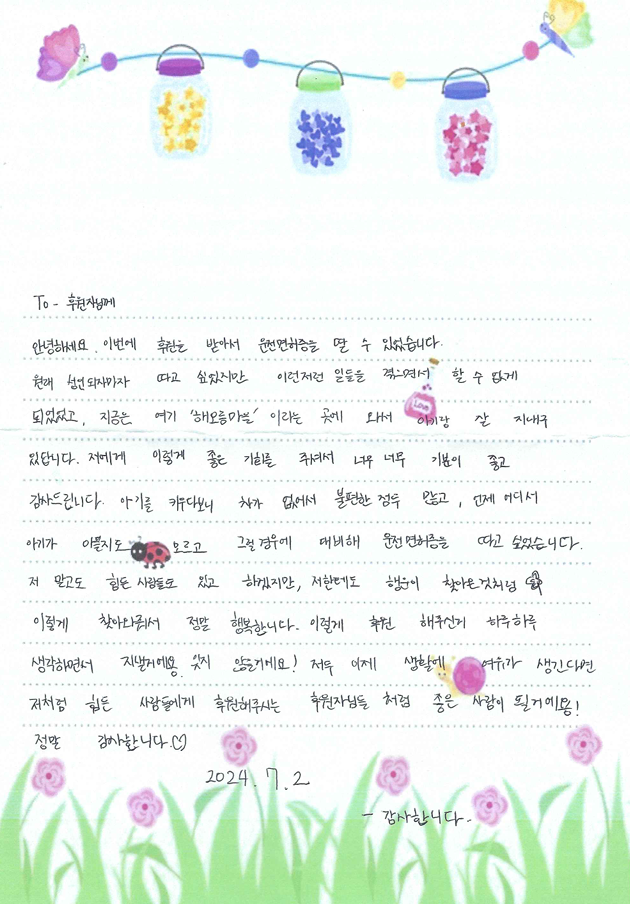 To - 후원자님께
안녕하세요. 이번에 후원을 받아서 운전면허증을 딸 수 있었습니다.
원래 따고 싶었지만 이런저런 일들을 겪으면서 할 수 없게
되었었고, 지금은 여기 '해오름마을' 이라는 곳에 와서 아기랑 잘 지내구
Love
있답니다. 저에게 이렇게 좋은 기회를 주셔서 너무 너무 기분이 좋고
감사드립니다. 아기를 키우다보니 차가 없어서 불편한 점두 많고, 언제 어디서
아기가 아플지도 모르고 그럴 경우에 대비해 운전면허증을 따고 싶었습니다.
저 말고도 힘든 사람들도 있고 하겠지만, 저한테도 행운이 찾아온것처럼
이렇게 찾아와줘서 정말 행복합니다. 이렇게 후원 해주신거 하루하루
생각하면서 지낼거에용. 잊지 않을거에요! 저두 이제 생활에 여유가 생긴다면
저처럼 힘든 사람들에게 후원해주시는 후원자님들 처럼 좋은 사람이 될거에용!
정말 감사합니다.♡
2024. 7. 2
- 감사합니다.